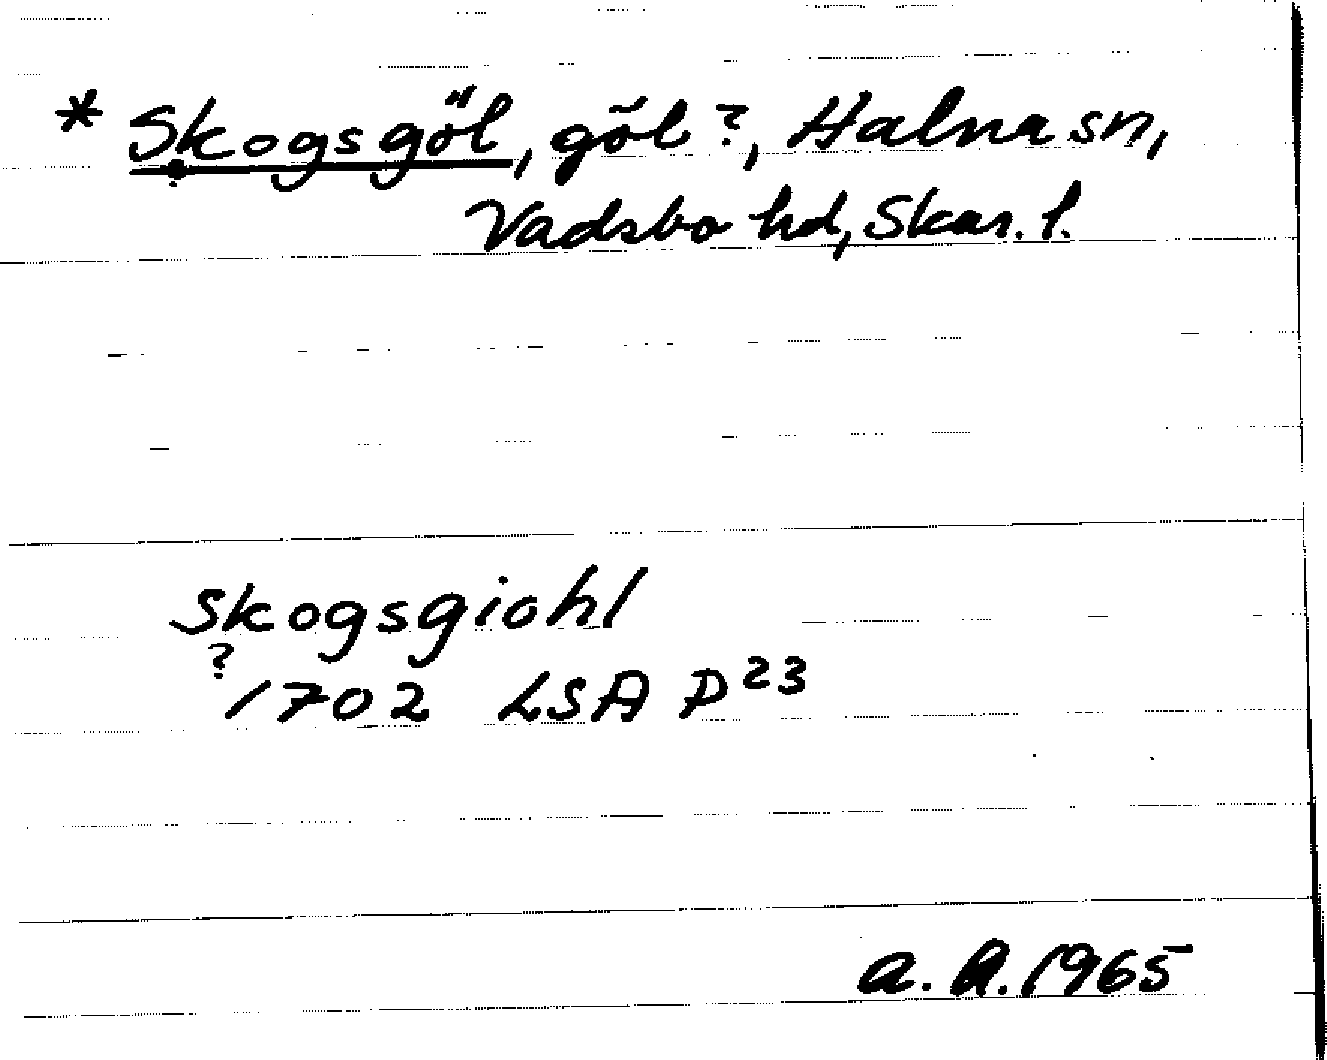 * Skogsgöl, göl?, Halna sn,
Vadsbo hd, Skar. l.
Skogsgiohl
?
1702 LSA P²³
a. A. 1965